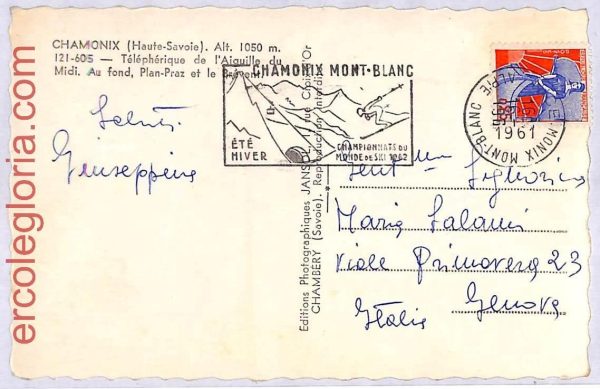 CHAMONIX (Haute-Savoie). Alt. 1050 m.
121-605 — Téléphérique de l'Aiguille du
Midi. Au fond, Plan-Praz et le Brévent.
Saluti
Giuseppina
CHAMONIX MONT-BLANC
ÉTÉ
HIVER
CHAMPIONNATS DU
MONDE DE SKI 1962
CHAMONIX MONT-BLANC
1961
Editions Photographiques JANSOL
CHAMBERY (Savoie). Reproduction Interdite
Gent.ma Signorina
Maria Salami
Viale Primavera 23
Genova
Italia
ercolegloria.com